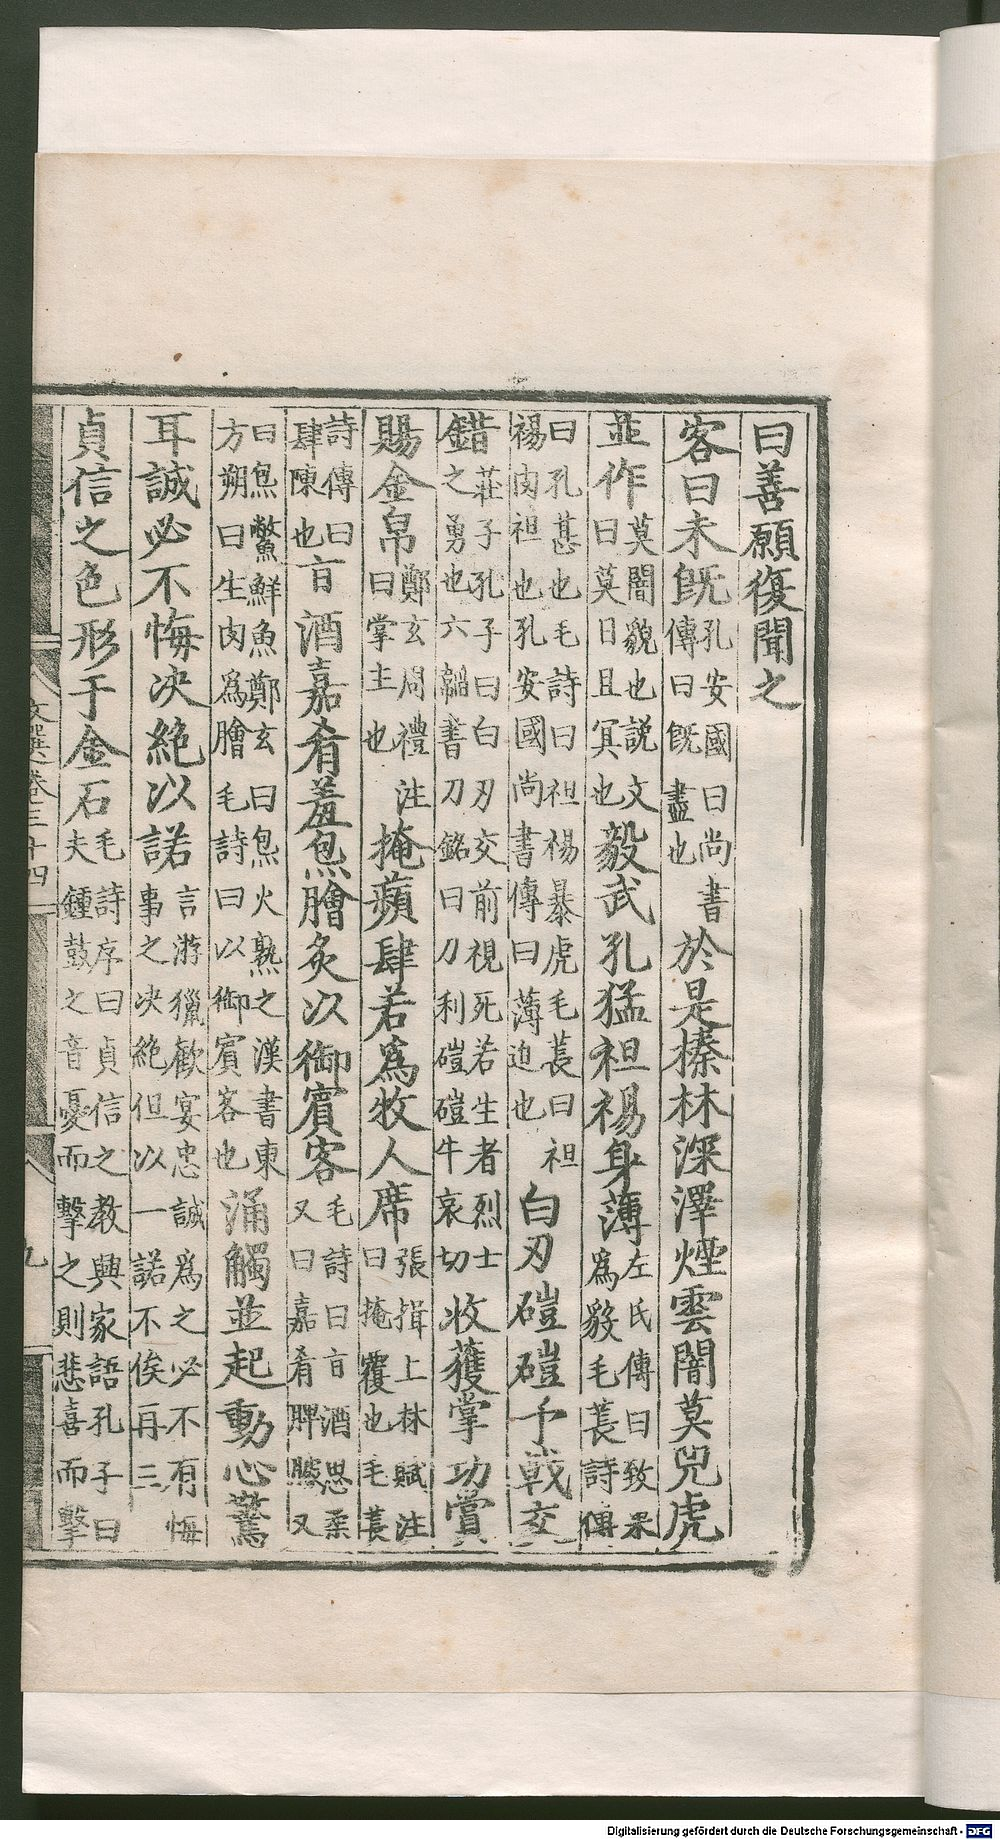 曰善願復聞之
客曰未旣孔安國曰尚書傳曰旣盡也於是榛林深澤煙雲闇莫兕虎
並作莫闇貌也說文曰莫日且冥也毅武孔猛袒裼身薄左氏傳曰致果爲毅毛萇詩傳
曰孔甚也毛詩曰袒裼暴虎毛萇曰袒裼肉袒也孔安國尚書傳曰薄迫也白刃磑磑予戟交
錯莊子孔子曰白刃交前視死若生者烈士之勇也六韜書刀銘曰刀利磑磑牛哀切收獲掌功賞
賜金帛鄭玄周禮注曰掌主也掩蘋肆若爲牧人席張揖上林賦注曰掩覆也毛萇
詩傳曰肆陳也旨酒嘉肴羞炰膾炙以御賓客毛詩曰旨酒思柔又曰嘉肴脾臄又
曰炰鱉鮮魚鄭玄曰炰火熟之漢書東方朔曰生肉爲膾毛詩曰以御賓客也涌觸並起動心驚
耳誠必不悔决絶以諾言游獵歡宴忠誠爲之必不有悔事之决絶但以一諾不俟再三
貞信之色形于金石毛詩序曰貞信之教興家語孔子曰夫鍾鼓之音憂而擊之則悲喜而擊
文選卷三十四
九
Digitalisierung gefördert durch die Deutsche Forschungsgemeinschaft - DFG